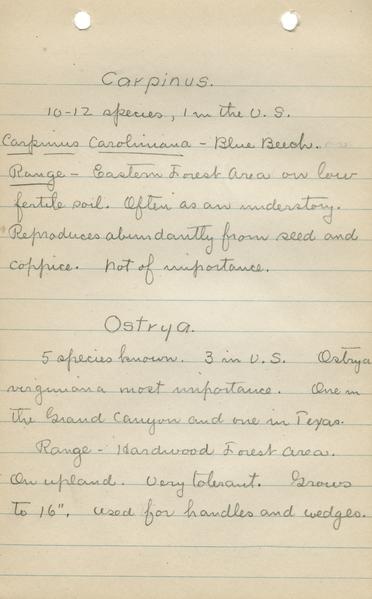 Carpinus.
10-12 species, 1 in the U.S.
Carpinus Caroliniana - Blue Beech.
Range - Eastern Forest Area on low
fertile soil. Often as an understory.
Reproduces abundantly from seed and
coppice. Not of importance.
Ostrya.
5 species known. 3 in U.S. Ostrya
virginiana most importance. One in
the Grand Canyon and one in Texas.
Range - Hardwood Forest Area.
On upland. Very tolerant. Grows
to 16". Used for handles and wedges.